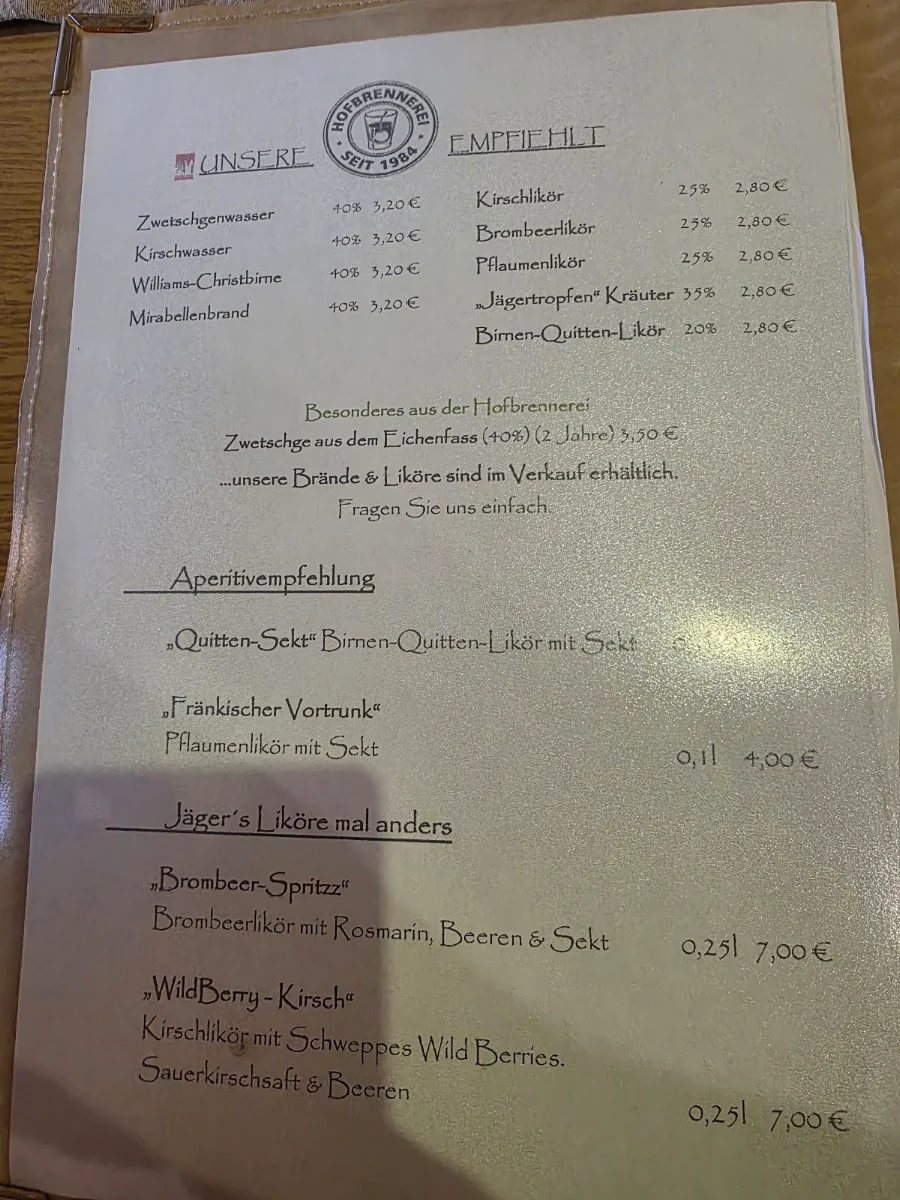 UNSERE
HOFBRENNEREI
SEIT 1984
EMPFIEHLT
Zwetschgenwasser 40% 3,20 €
Kirschwasser 40% 3,20 €
Williams-Christbirne 40% 3,20 €
Mirabellenbrand 40% 3,20 €
Kirschlikör 25% 2,80 €
Brombeerlikör 25% 2,80 €
Pflaumenlikör 25% 2,80 €
„Jägertropfen“ Kräuter 35% 2,80 €
Birnen-Quitten-Likör 20% 2,80 €
Besonderes aus der Hofbrennerei
Zwetschge aus dem Eichenfass (40%) (2 Jahre) 3,50 €
...unsere Brände & Liköre sind im Verkauf erhältlich.
Fragen Sie uns einfach.
Aperitivempfehlung
„Quitten-Sekt“ Birnen-Quitten-Likör mit Sekt
„Fränkischer Vortrunk“
Pflaumenlikör mit Sekt 0,1l 4,00 €
Jäger´s Liköre mal anders
„Brombeer-Spritzz“
Brombeerlikör mit Rosmarin, Beeren & Sekt 0,25l 7,00 €
„WildBerry - Kirsch“
Kirschlikör mit Schweppes Wild Berries.
Sauerkirschsaft & Beeren
0,25l 7,00 €